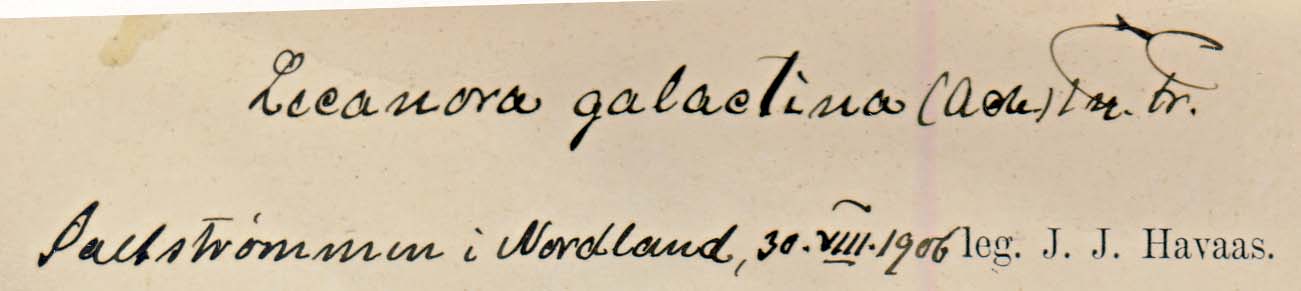 Lecanora galactina (Ach.) Th. Fr.
Saltstrømmen i Nordland, 30. VIII. 1906 leg. J. J. Havaas.